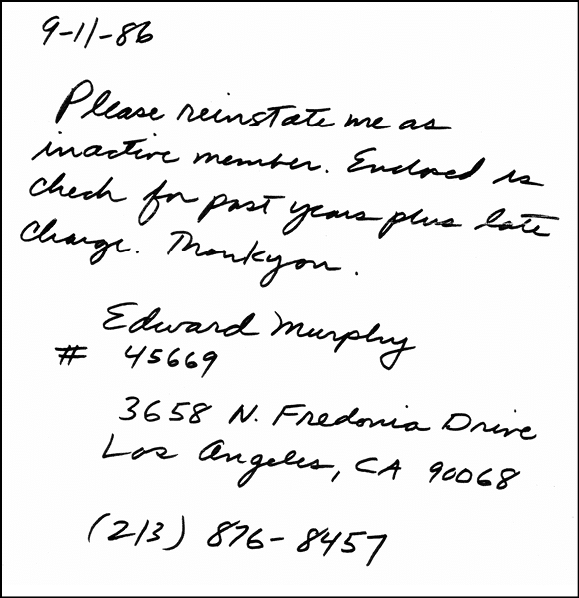 9-11-86
Please reinstate me as
inactive member. Enclosed is
check for past years plus late
charge. Thank you.
Edward Murphy
# 45669
3658 N. Fredonia Drive
Los Angeles, CA 90068
(213) 876-8457